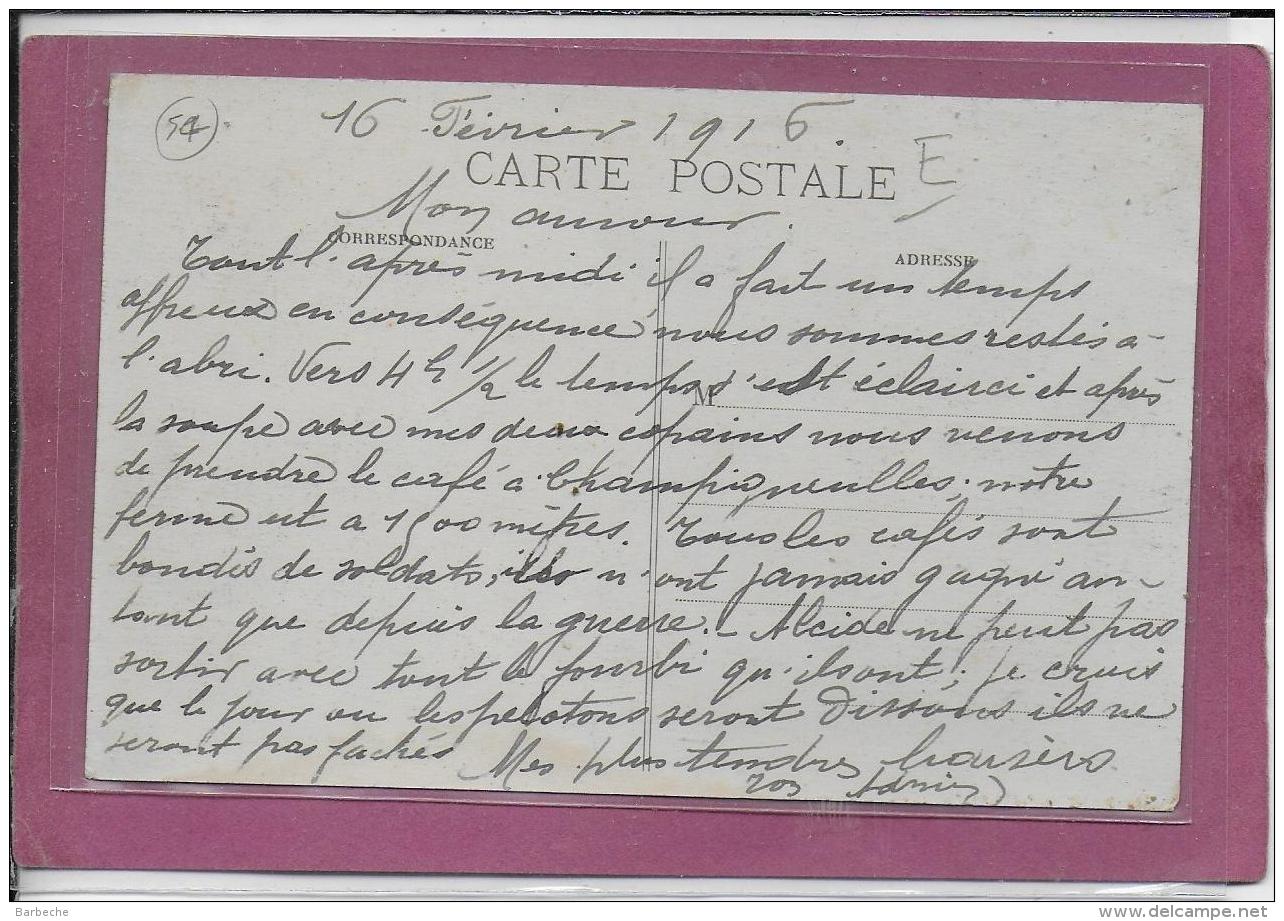 54
16 Février 1916.
CARTE POSTALE E
Mon amour.
CORRESPONDANCE
ADRESSE
Tout l'après midi il a fait un temps
affreux en conséquence nous sommes restés à
l'abri. Vers 4 h 1/2 le temps s'est éclairci et après
M
la soupe avec mes deux copains nous venons
de prendre le café à Champigneulles. notre
ferme est a 1500 mètres. Tous les cafés sont
bondés de soldats, ils n'ont jamais gagné au-
tant que depuis la guerre. - Alcide ne peut pas
sortir avec tout le fourbi qu'ils ont; je crois
que le jour ou les pelotons seront dissous ils ne
seront pas fachés Mes plus tendres baisers
Ton Adrien
Barbeche
www.delcampe.net